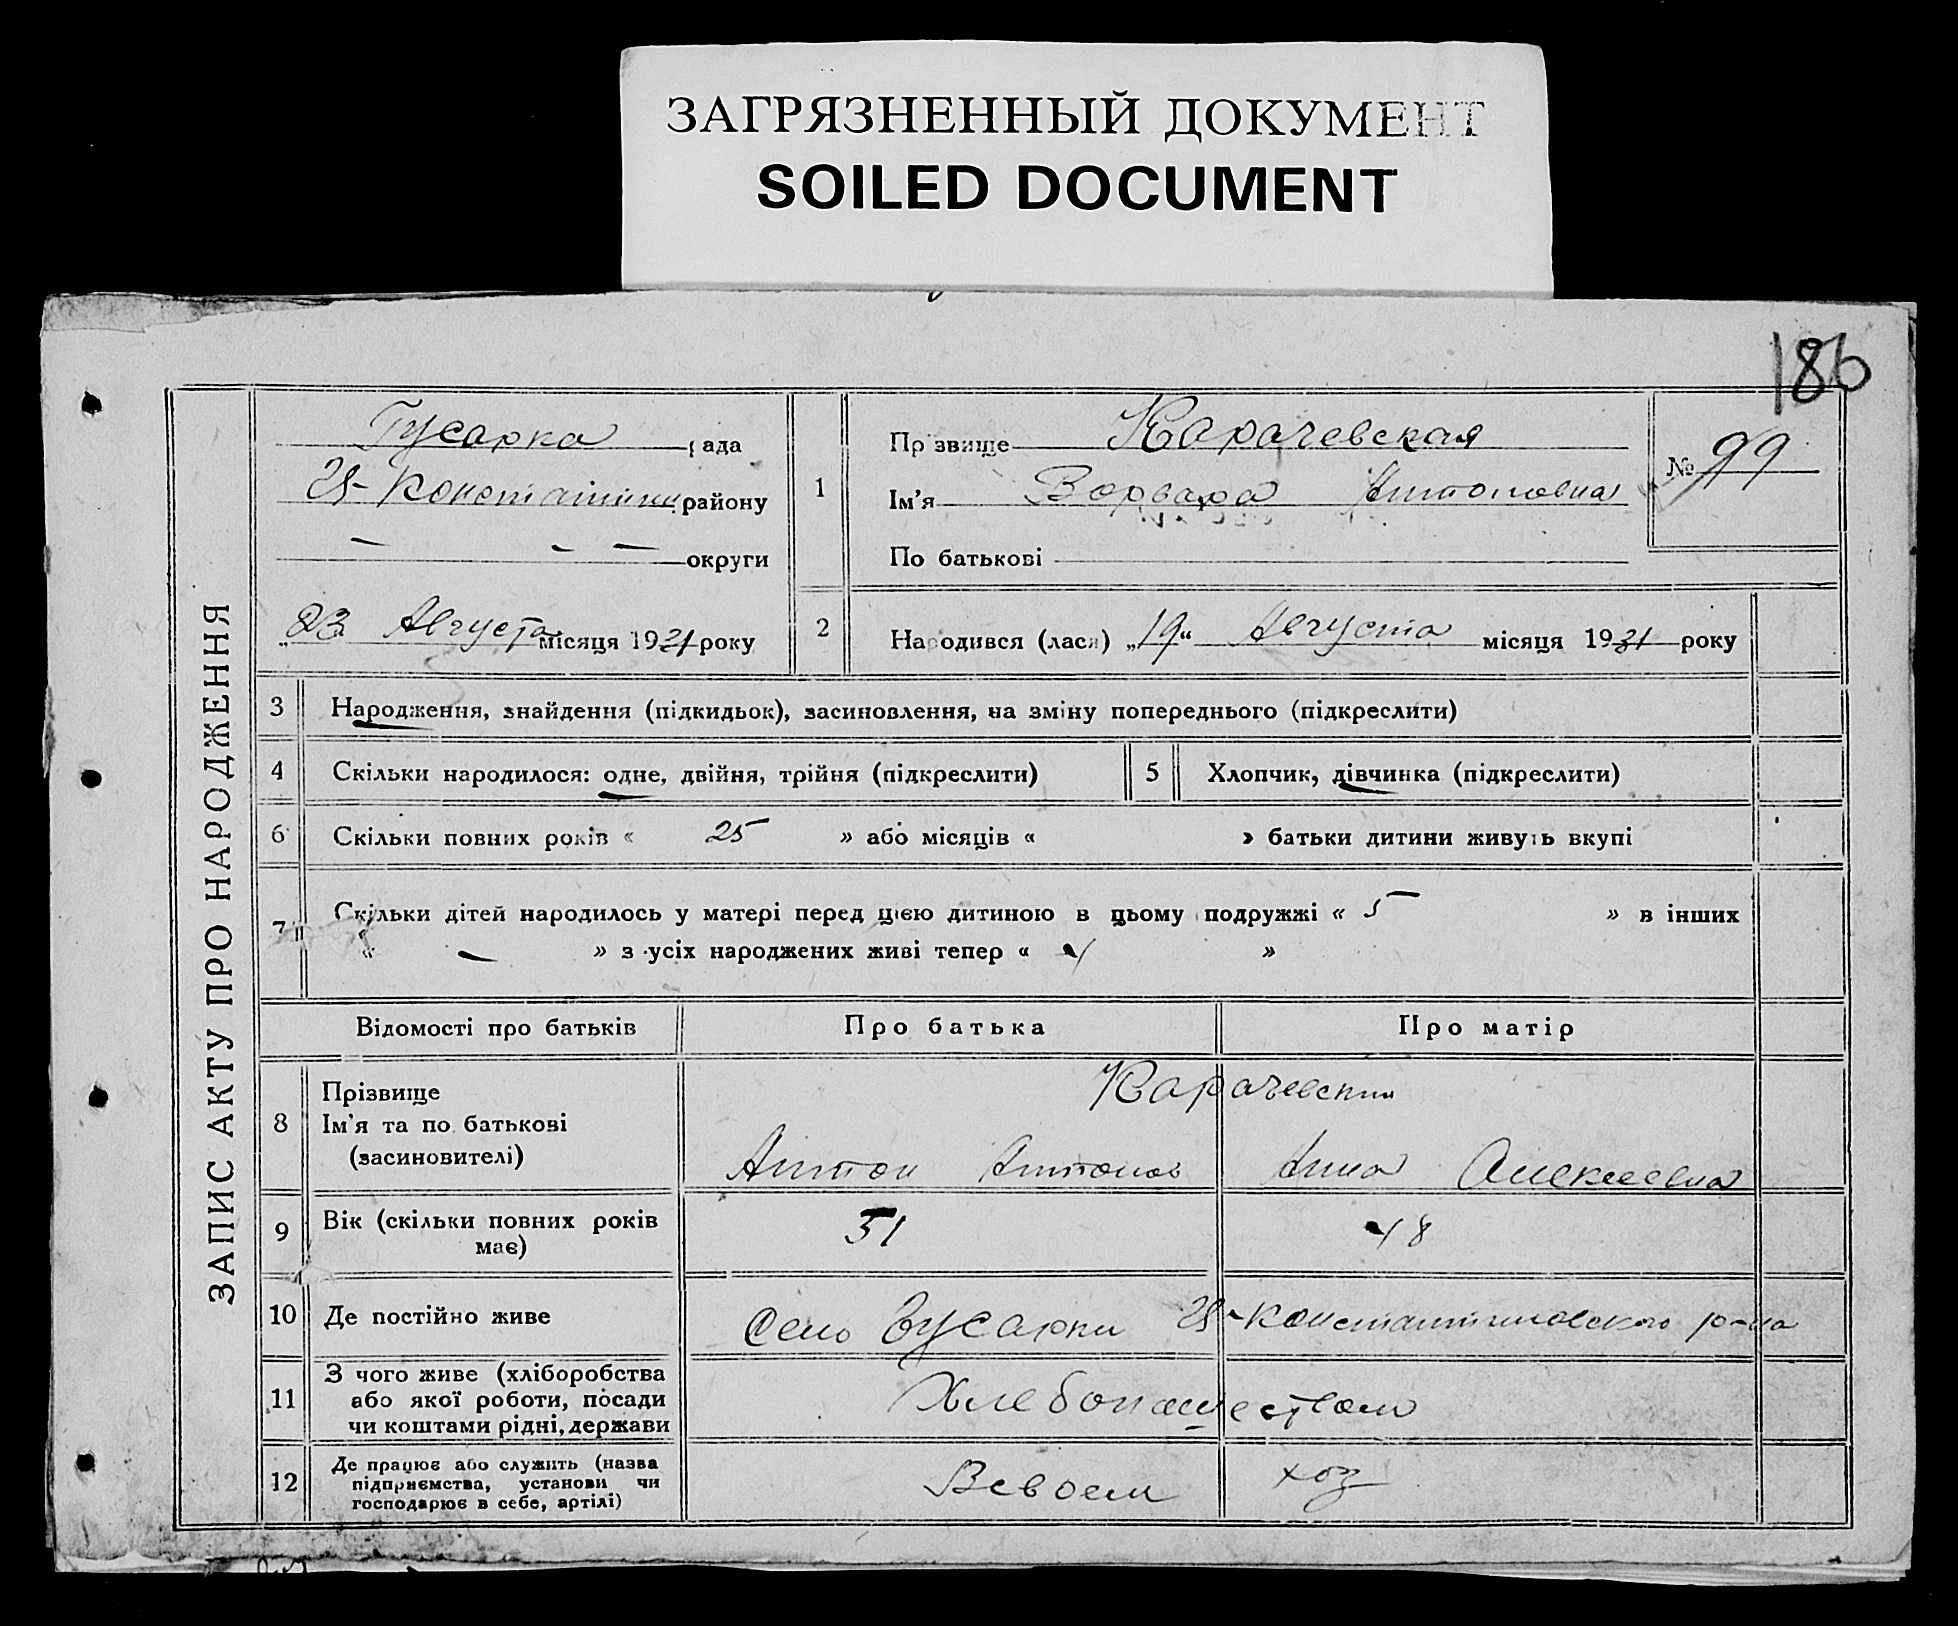 ЗАГРЯЗНЕННЫЙ ДОКУМЕНТ
SOILED DOCUMENT
186
ЗАПИС АКТУ ПРО НАРОДЖЕННЯ
Гусарка рада
району
— — — округи
„23 Августа місяця 1931 року
1
Прізвище Карачевская
Ім'я Варвара Антоновна
По батькові
№ 99
2 Народився (лася) „19“ Августа місяця 1931 року
3 Народження, знайдення (підкидьок), засиновлення, на зміну попереднього (підкреслити)
4 Скільки народилося: одне, двійня, трійня (підкреслити) 5 Хлопчик, дівчинка (підкреслити)
6 Скільки повних років « 25 » або місяців « » батьки дитини живуть вкупі
7 Скільки дітей народилось у матері перед цією дитиною в цьому подружжі « 5 » в інших
« — » з усіх народжених живі тепер « 4 »
Відомості про батьків Про батька Про матір
8 Прізвище
Ім'я та по батькові
(засиновителі)
Карачевский
Антон Антонов Анна Алексеевна
9 Вік (скільки повних років
має)
51 48
10 Де постійно живе Село Гусарки Константиновского р-на
11 З чого живе (хліборобства
або якої роботи, посади
чи коштами рідні, держави
Хлебопашеством
12 Де працює або служить (назва
підприємства, установи чи
господарює в себе, артілі)
Всвоем хоз